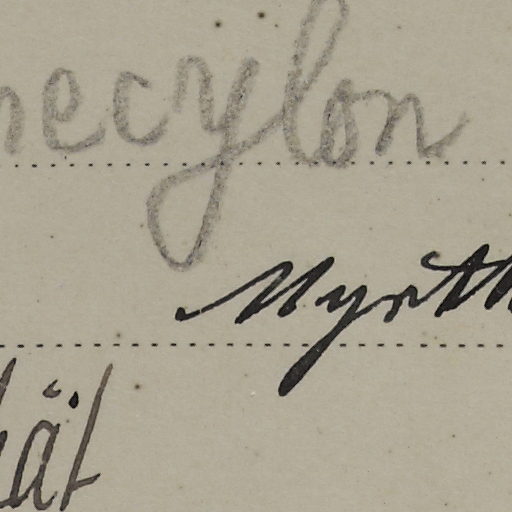 necylon
Myrth
tät